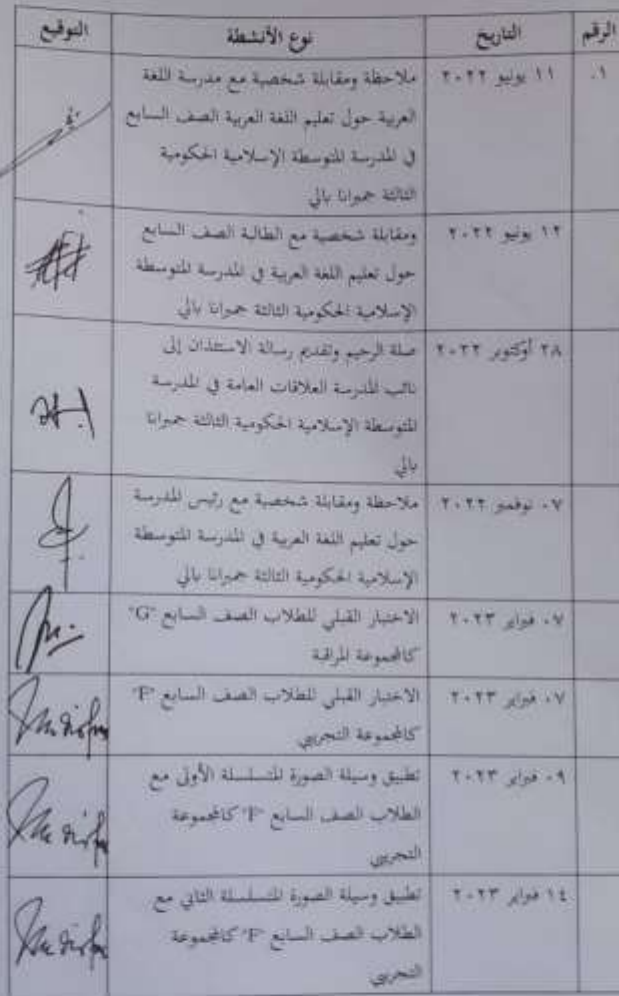 الرقم التاريخ نوع الأنشطة التوقيع
.١ ١١ يونيو ٢٠٢٢ ملاحظة ومقابلة شخصية مع مدرسة اللغة
العربية حول تعليم اللغة العربية الصف السابع
في المدرسة المتوسطة الإسلامية الحكومية
الثالثة جمبرانا بالي
١٢ يونيو ٢٠٢٢ ومقابلة شخصية مع الطالبة الصف السابع
حول تعليم اللغة العربية في المدرسة المتوسطة
الإسلامية الحكومية الثالثة جمبرانا بالي
٢٨ أوكتوبر ٢٠٢٢ صلة الرحيم وتقديم رسالة الاستئذان إلى
نائب المدرسة العلاقات العامة في المدرسة
المتوسطة الإسلامية الحكومية الثالثة جمبرانا
بالي
٠٧ نوفمبر ٢٠٢٢ ملاحظة ومقابلة شخصية مع رئيس المدرسة
حول تعليم اللغة العربية في المدرسة المتوسطة
الإسلامية الحكومية الثالثة جمبرانا بالي
٠٧ فبراير ٢٠٢٣ الاختبار القبلي للطلاب الصف السابع "G"
كالمجموعة المراقبة
٠٧ فبراير ٢٠٢٣ الاختبار القبلي للطلاب الصف السابع "F"
كالمجموعة التجريبي
٠٩ فبراير ٢٠٢٣ تطبيق وسيلة الصورة المتسلسلة الأولى مع
الطلاب الصف السابع "F" كالمجموعة
التجريبي
١٤ فبراير ٢٠٢٣ تطبيق وسيلة الصورة المتسلسلة الثاني مع
الطلاب الصف السابع "F" كالمجموعة
التجريبي